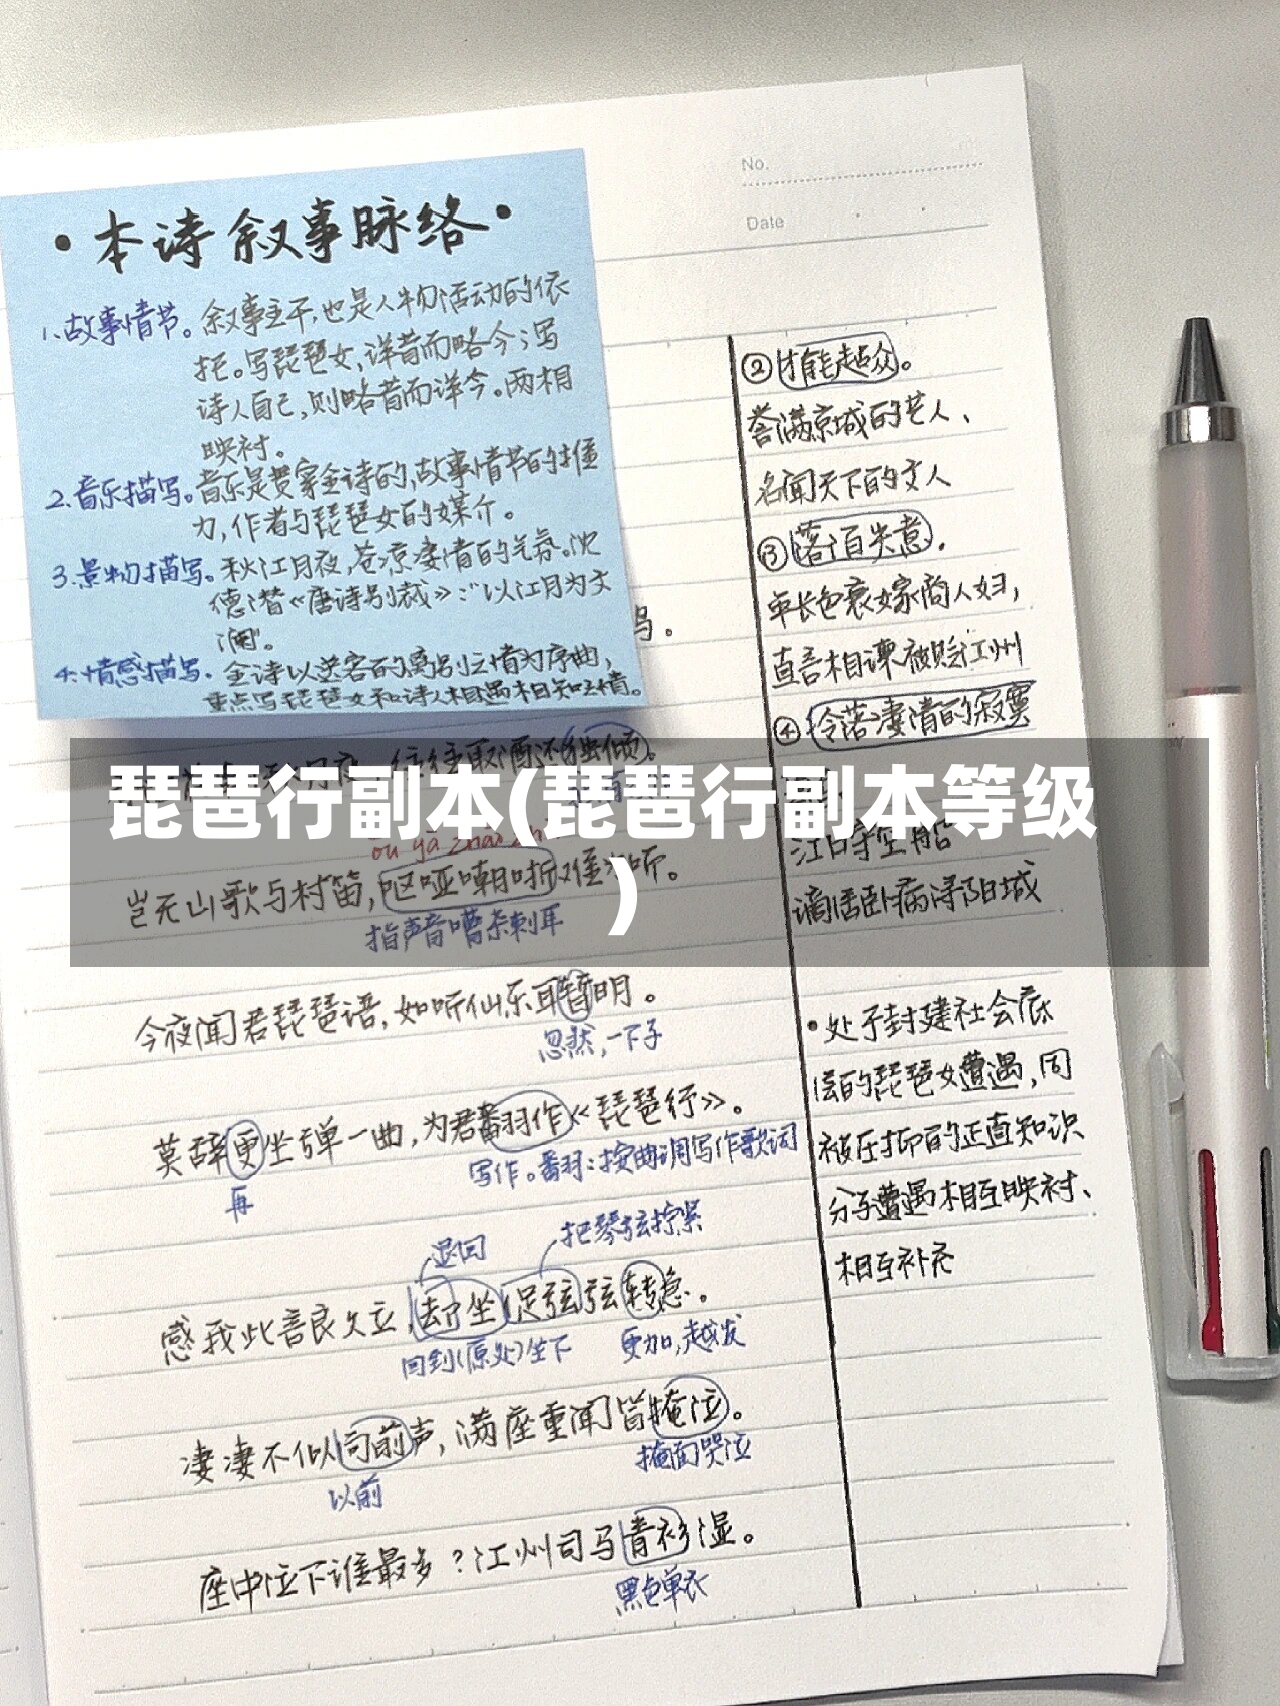 No.
Date
·本诗叙事脉络·
1.故事情节。叙事主干,也是人物活动的依
托。写琵琶女,详昔而略今;写
诗人自己,则略昔而详今。两相
映衬。
2.音乐描写。音乐是贯穿全诗的,故事情节的推
力,作者与琵琶女的媒介。
3.景物描写。秋江月夜,苍凉凄清的气氛。沈
德潜《唐诗别裁》:"以江月为文
澜"。
4.情感描写.全诗以送客的离别之情为序曲,
重点写琵琶女和诗人相遇相知之情。
鸟。
往往取酒还独倾。
琵琶行副本(琵琶行副本等级
)
ou yā zhāo zh
岂无山歌与村笛,呕哑嘲哳难为听。
指声音嘈杂刺耳
今夜闻君琵琶语,如听仙乐耳暂明。
忽然,一下子
莫辞更坐弹一曲,为君翻作《琵琶行》。
再
写作。翻:按曲调写作歌词
退回
把琴弦拧紧
感我此言良久立,却坐促弦弦转急。
回到(原处)坐下
更加,越发
凄凄不似向前声,满座重闻皆掩泣。
以前
掩面哭泣
座中泣下谁最多?江州司马青衫湿。
黑色单衣
②才能超众。
誉满京城的艺人、
名闻天下的文人
③落泊失意.
年长色衰嫁商人妇,
直言相谏被贬江州
④冷落凄清的寂寞
江口守空船
谪居卧病浔阳城
·处于封建社会底
层的琵琶女遭遇,同
被压抑的正直知识
分子遭遇相互映衬、
相互补充